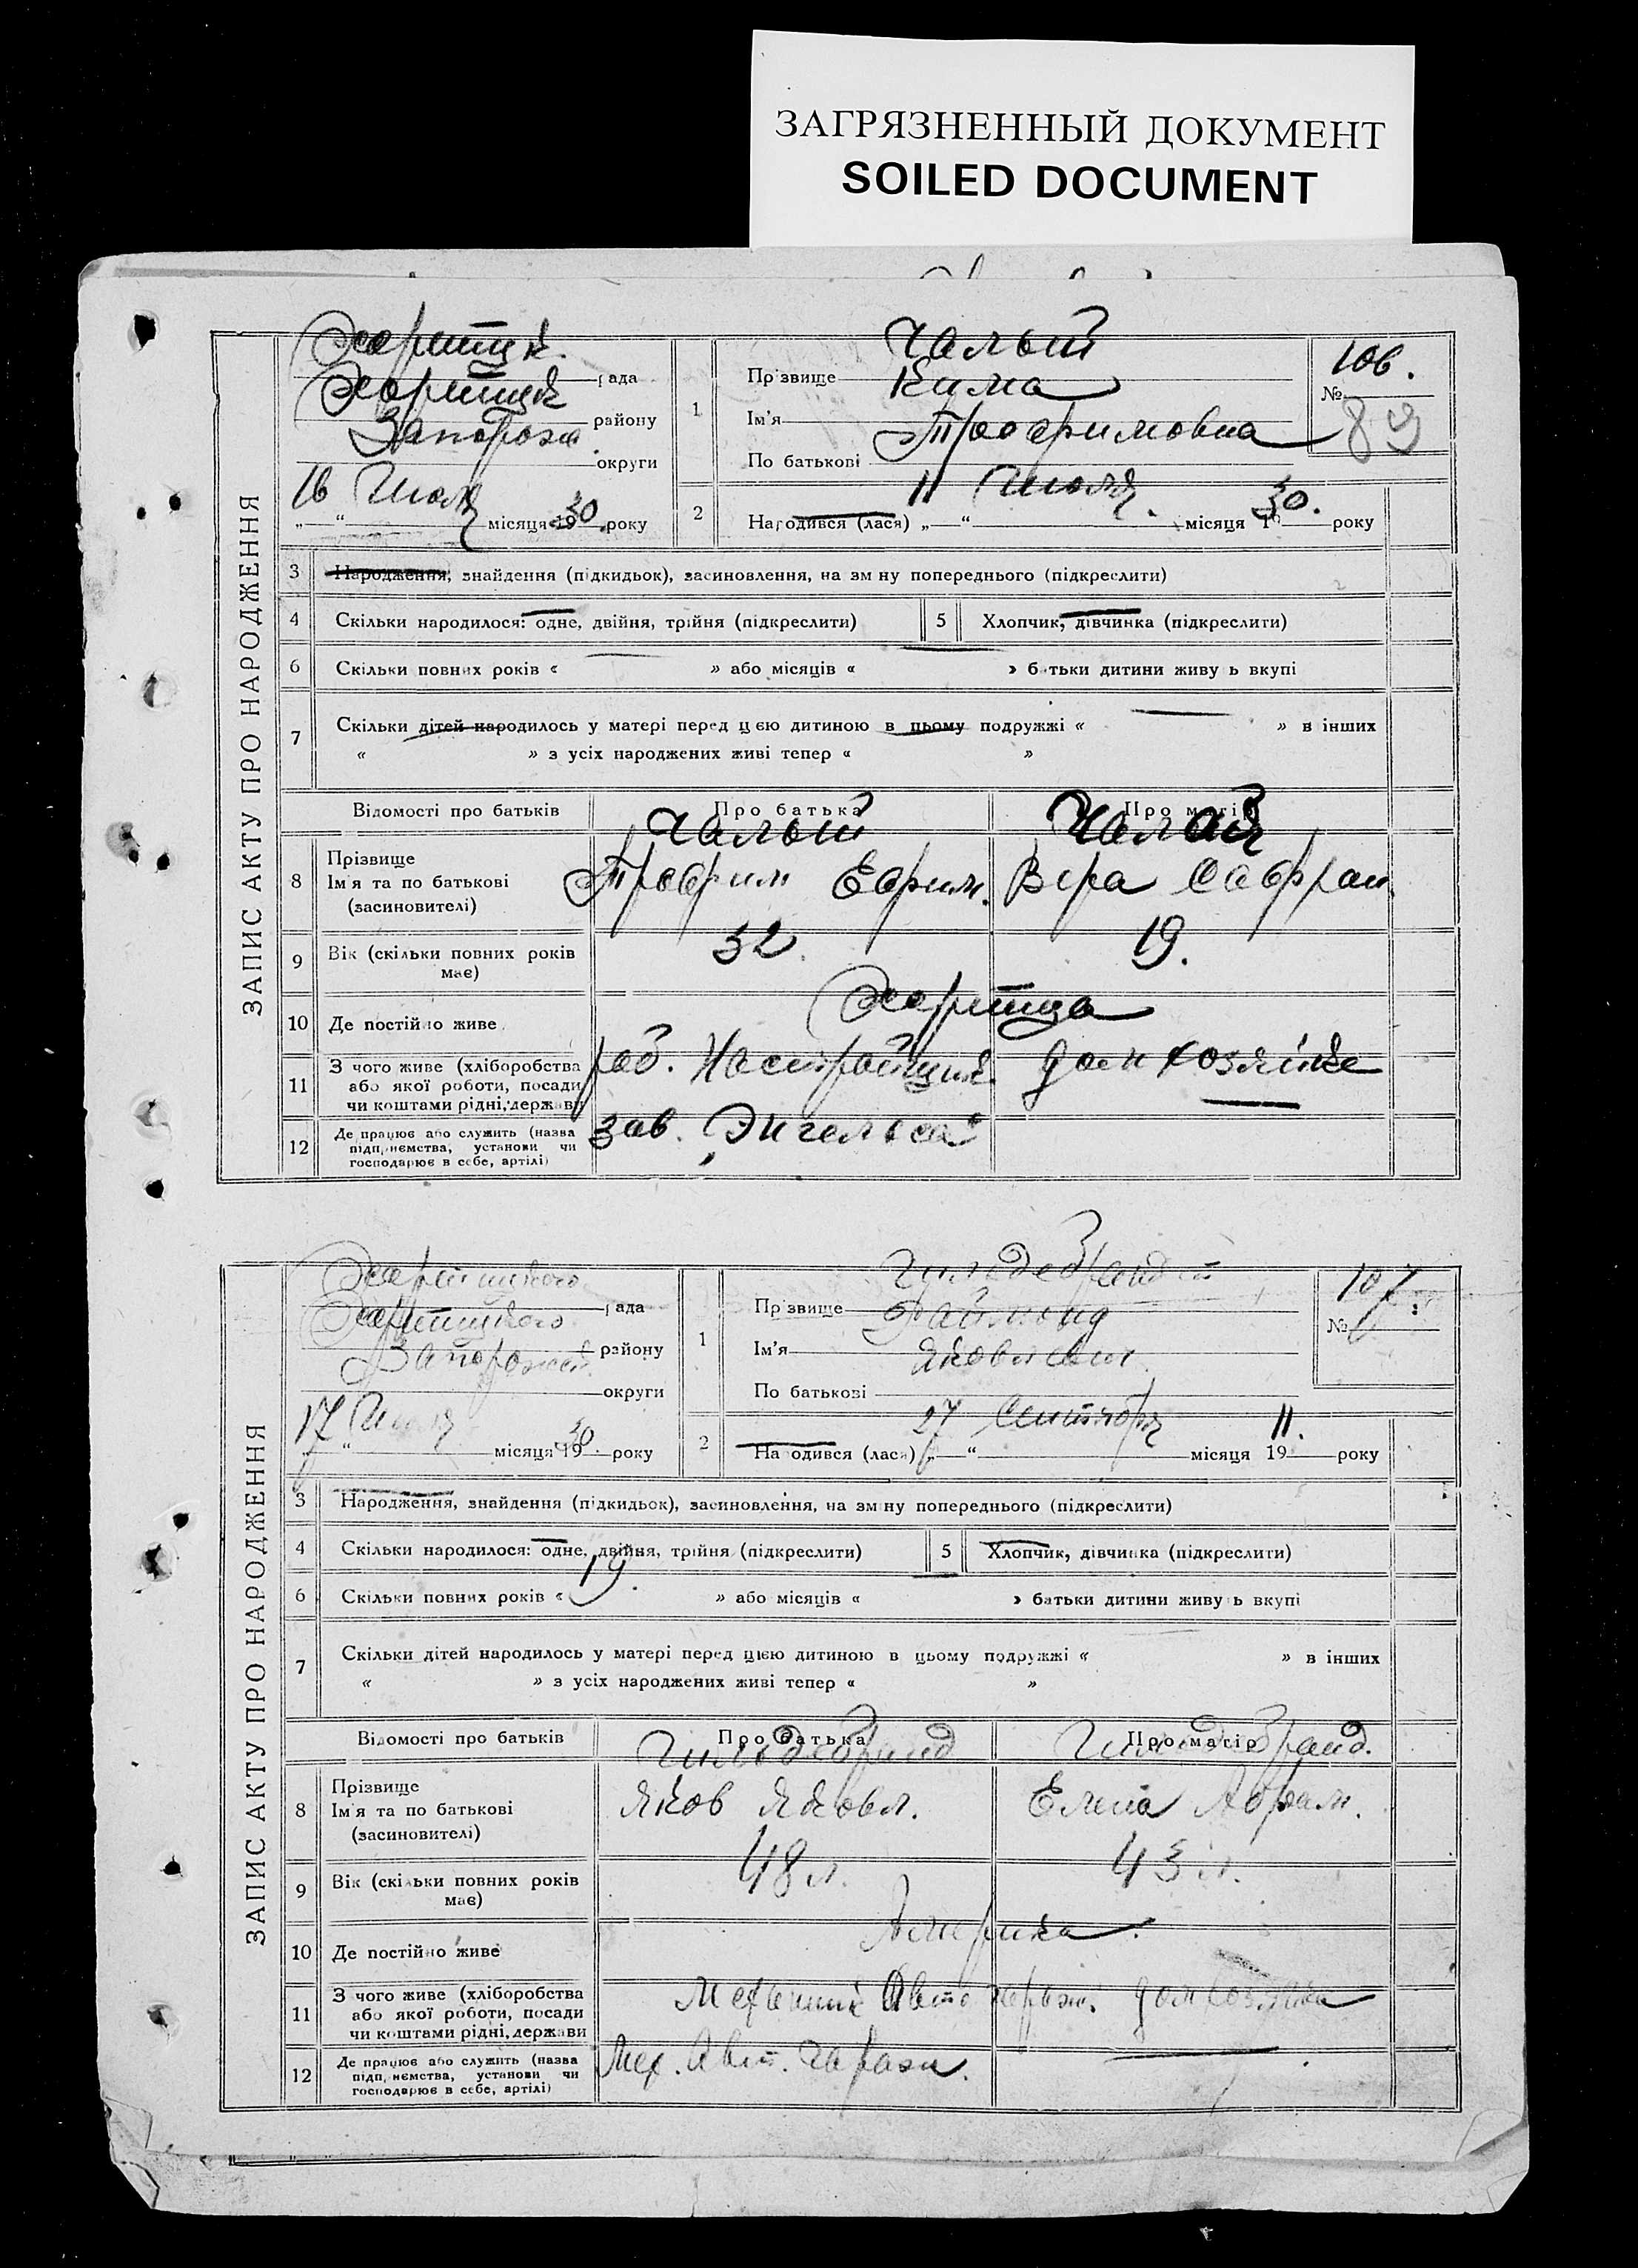 ЗАГРЯЗНЕННЫЙ ДОКУМЕНТ
SOILED DOCUMENT
ЗАПИС АКТУ ПРО НАРОДЖЕННЯ
Хортицк.
рада
Хортицк
району
Запорож.
округи
16 Июля
„ “ місяця 1930 року
1
Чалый
Прізвище
Кима
Ім'я
Трофимовна
По батькові
106.
№
89
2
11 Июля. 30.
Народився (лася) „ “ місяця 19 року
3 Народження, знайдення (підкидьок), засиновлення, на зміну попереднього (підкреслити)
4 Скільки народилося: одне, двійня, трійня (підкреслити) 5 Хлопчик, дівчинка (підкреслити)
6 Скільки повних років « » або місяців « » батьки дитини живуть вкупі
7 Скільки дітей народилось у матері перед цією дитиною в цьому подружжі « » в інших
« » з усіх народжених живі тепер « »
Відомості про батьків Про батька Про матір
Чалый Чалая
8 Прізвище
Ім'я та по батькові
(засиновителі)
Трофим Ефрим. Вера
9 Вік (скільки повних років має)
32. 19.
10 Де постійно живе
Хортица
11 З чого живе (хліборобства
або якої роботи, посади
чи коштами рідні, держави
раб. Настройщик домхозяйка
12 Де працює або служить (назва
підприємства, установи чи
господарює в себе, артілі)
зав. Энгельса
ЗАПИС АКТУ ПРО НАРОДЖЕННЯ
Хортицкого
рада
Хортицкого
району
Запорожск.
округи
17 Июля
„ “ місяця 1930. року
1
Гильдебрандт
Прізвище
Ім'я
Яковлевич
По батькові
107.
№
2
27 Сентября 11.
Народився (лася) „ “ місяця 19 року
3 Народження, знайдення (підкидьок), засиновлення, на зміну попереднього (підкреслити)
4 Скільки народилося: одне, двійня, трійня (підкреслити) 5 Хлопчик, дівчинка (підкреслити)
6 Скільки повних років « 19. » або місяців « » батьки дитини живуть вкупі
7 Скільки дітей народилось у матері перед цією дитиною в цьому подружжі « » в інших
« » з усіх народжених живі тепер « »
Відомості про батьків Про батька Про матір
Гильдебранд Гильдебранд.
8 Прізвище
Ім'я та по батькові
(засиновителі)
Яков Яковл. Елена Абрам.
9 Вік (скільки повних років має)
48 л. 43 л.
10 Де постійно живе
Америка.
11 З чого живе (хліборобства
або якої роботи, посади
чи коштами рідні, держави
Механик Авто домхозяйка
12 Де працює або служить (назва
підприємства, установи чи
господарює в себе, артілі)
Мех. Авт. гаража.